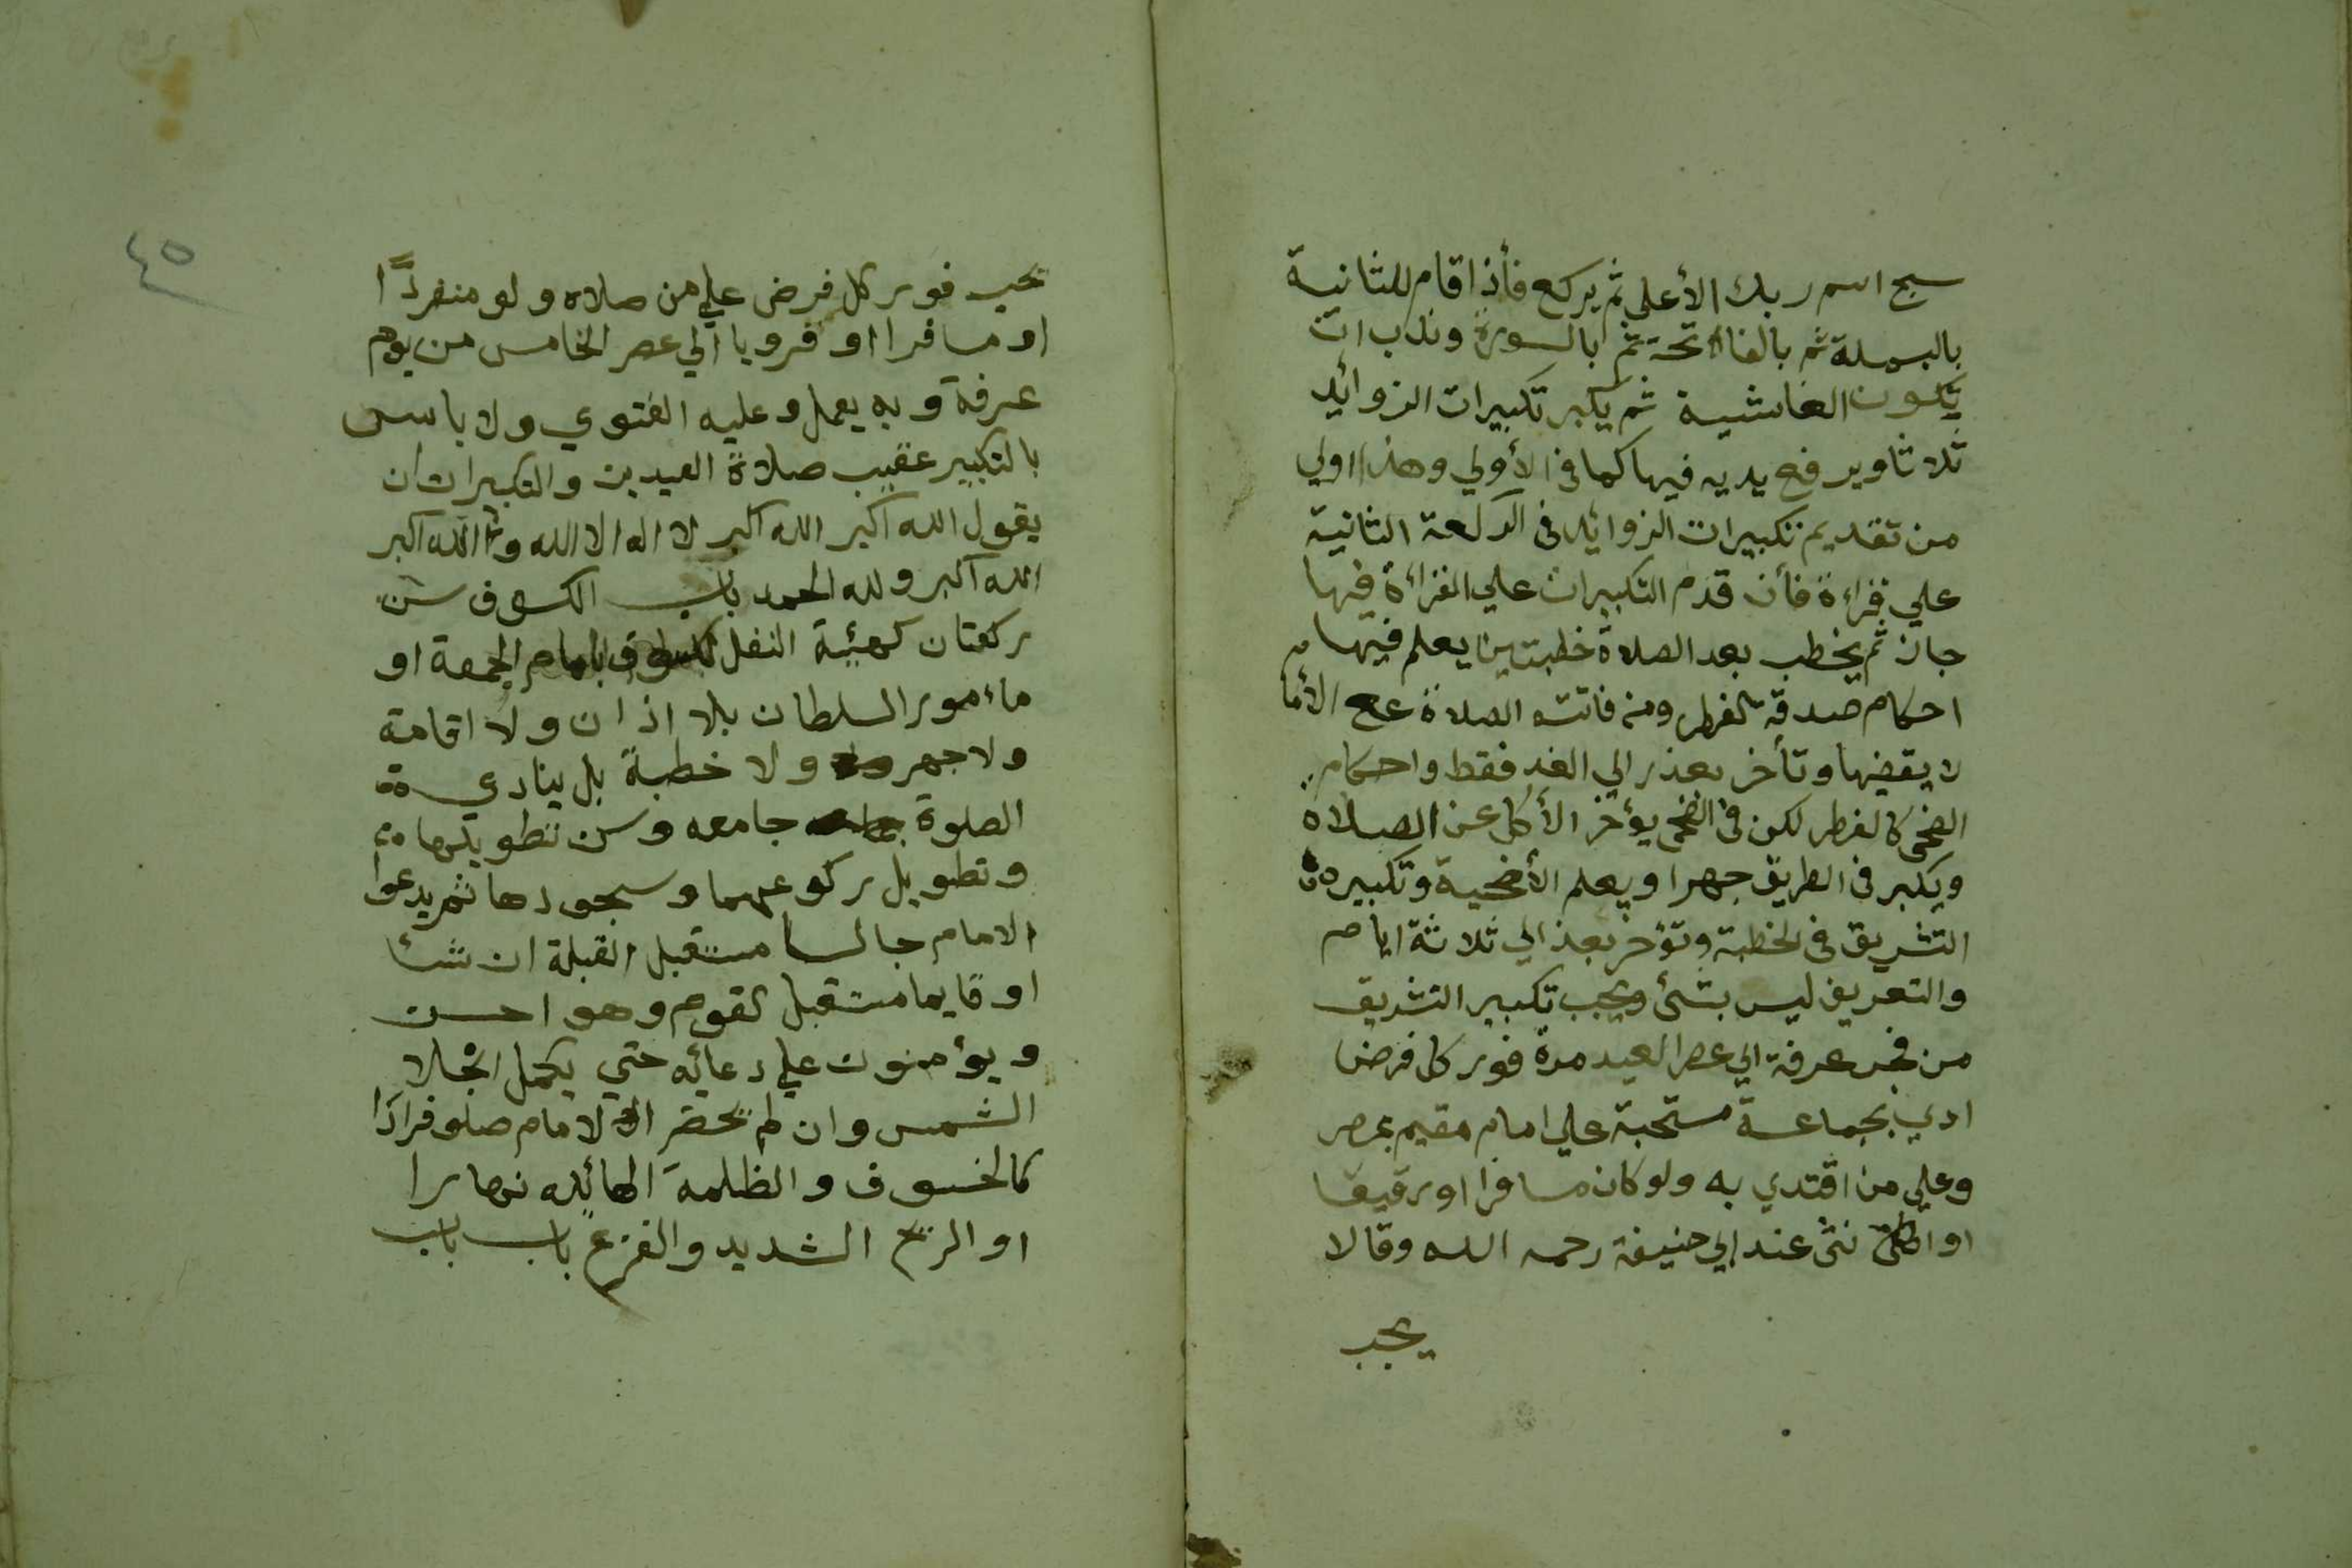 سبح اسم ربك الأعلي ثم يركع فأذا قام للثانية
بالبسملة ثم بالفاتحة ثم بالسورة وندب ان
يكون الغاشية ثم يكبر تكبيرات الزوائد
ثلاثا ويرفع يديه فيها كما في الأولي وهذا اولي
من تقديم تكبيرات الزوائد في الركعة الثانية
علي قراءة فأن قدم التكبيرات علي القراءة فيها
جاز ثم يخطب بعد الصلاة خطبتين يعلم فيها
احكام صدقة الفطر ومن فاتته الصلاة مع الأما
لا يقضيها وتأخر بعذر الي الغد فقط واحكام
الضحى كالفطر لكن في الضحى يؤخر الأكل عن الصلاة
ويكبر في الطريق جهرا ويعلم الأضحية وتكبير
التشريق في الخطبة وتؤخر بعذر الي ثلاثة ايام
والتعريف ليس بشئ ويجب تكبير التشريق
من فجر عرفة الي عصر العيد مرة فور كل فرض
ادي بجماعة مستحبة علي امام مقيم بمصر
وعلي من اقتدي به ولو كان مسافرا او رقيقا
او انثى عند ابي حنيفة رحمه الله وقالا
يجب
٤٥
يجب فور كل فرض علي من صلاه ولو منفردًا
او مسافرا او قرويا الي عصر الخامس من يوم
عرفة وبه يعمل وعليه الفتوي ولا باس
بالتكبير عقيب صلاة العيدين والتكبيرات ان
يقول الله اكبر الله اكبر لا اله الا الله والله اكبر
الله اكبر ولله الحمد باب الكسوف سن
ركعتان كهيئة النفل للكسوف بامام الجمعة او
مأمور السلطان بلا اذان ولا اقامة
ولا جهر ولا خطبة بل ينادي
الصلوة جامعه وسن تطويلها
وتطويل ركوعهما وسجودها ثم يدعوا
الامام جالسا مستقبل القبلة ان شأ
او قايما مستقبل القوم وهو احسن
ويؤمنون علي دعائه حتي يكمل انجلا
الشمس وان لم يحضر الامام صلو فرادًا
كالخسوف والظلمة الهائله نهارا
او الريح الشديد والفزع باب باب